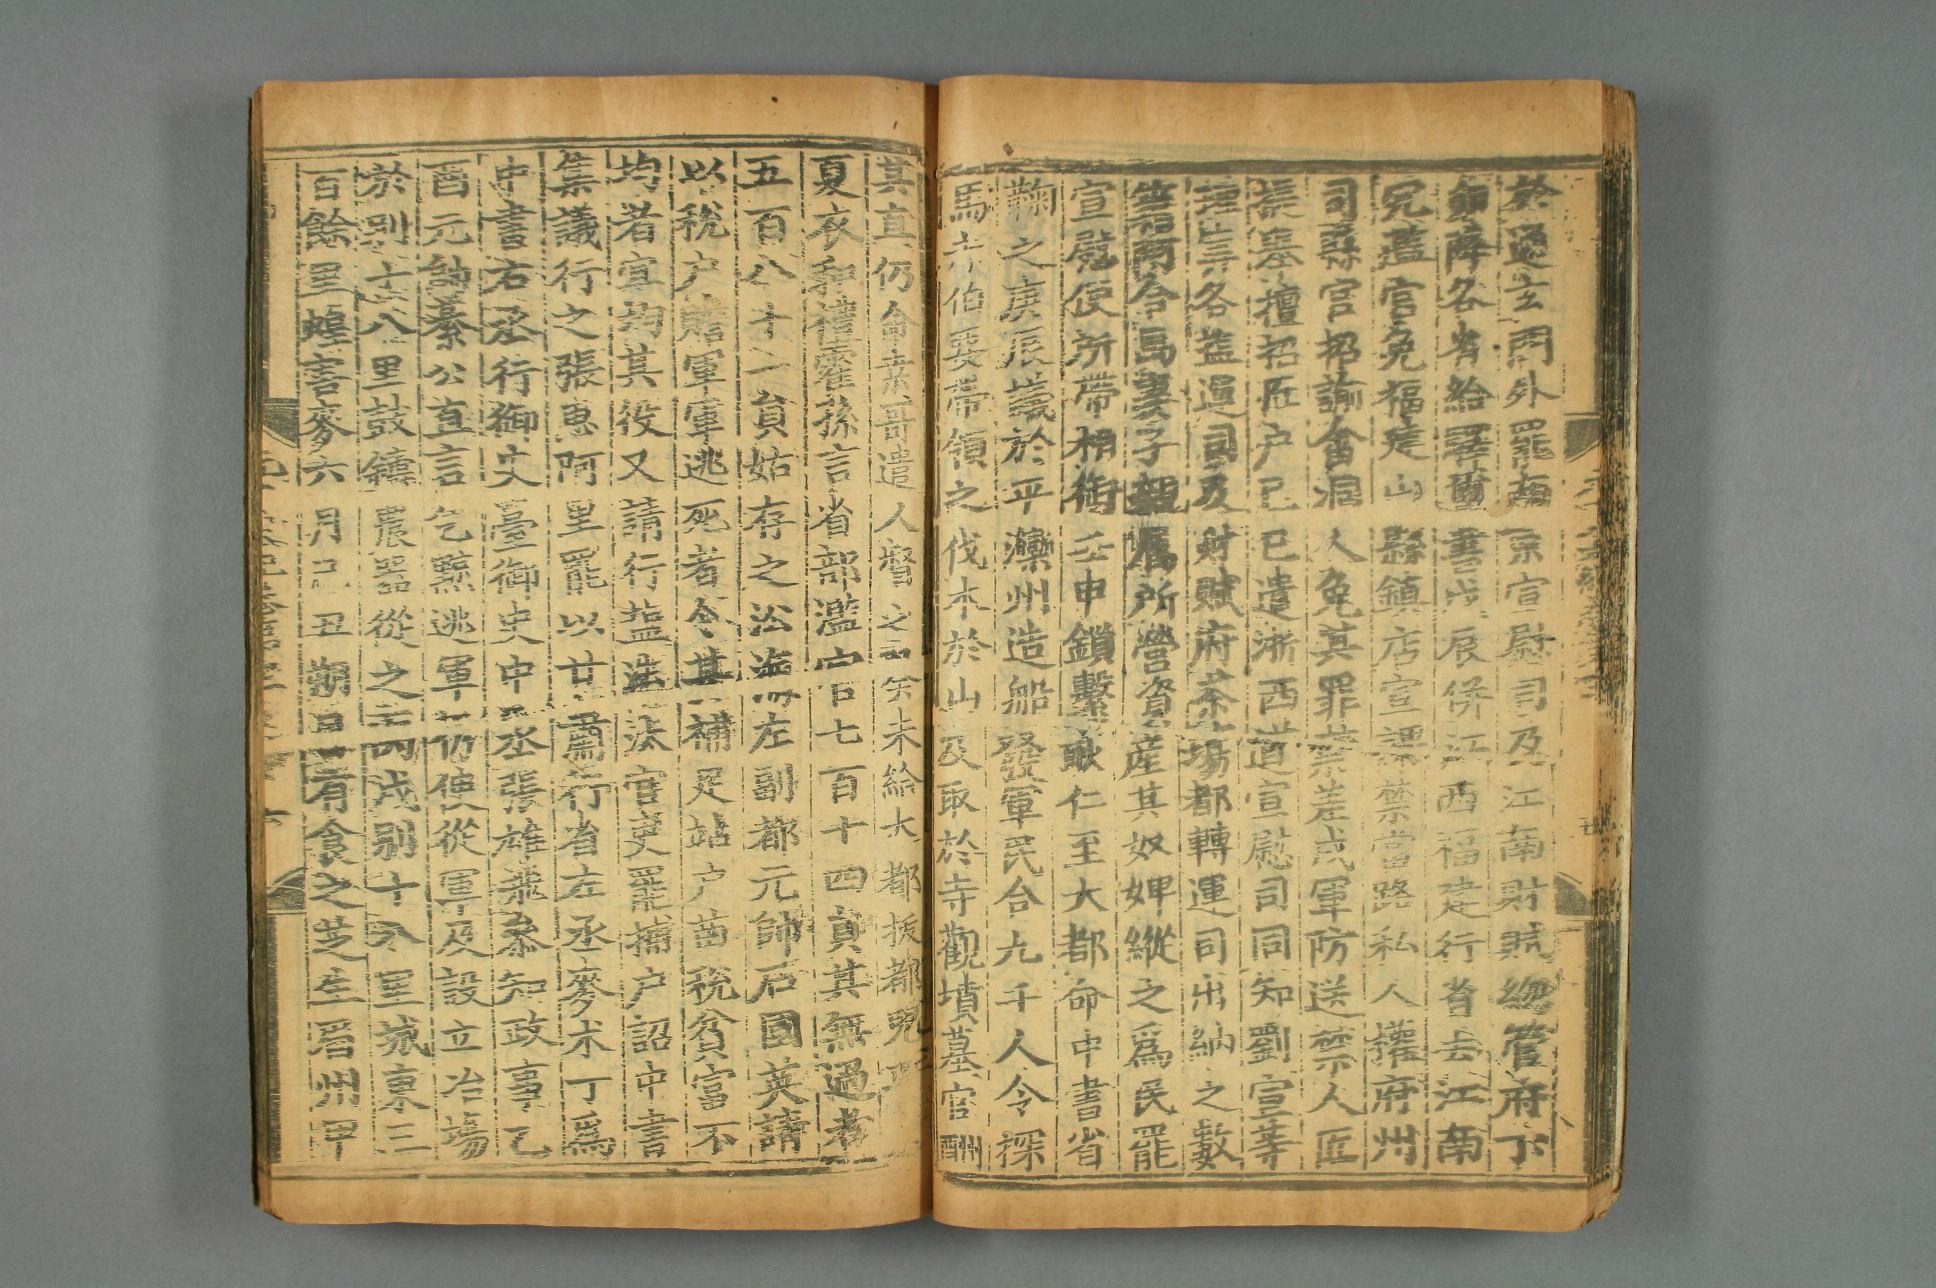 於通玄門外罷南京宣慰司及江南財賦總管府丁
卯降各省給驛璽書戊辰併江西福建行省去江南
冗濫官免福建山縣鎮店宣課禁當路私人權府州
司縣官招諭畬洞人免其罪禁差戍軍防送禁人匠
提舉擅招匠户己巳遣浙西道宣慰司同知劉宣等
理筭各盐運司及財賦府茶場都轉運司出納之數
籍阿合馬妻子親屬所營資産其奴婢縱之爲民罷
宣慰使所帶相銜壬申鎖繫耿仁至大都命中書省
鞫之庚辰議於平灤州造船發軍民合九千人令探
馬赤伯要帶領之伐木於山及取於寺觀墳墓官酬
其直仍命桒哥遣人督之癸未給大都拔都兒正
夏衣和禮霍孫言省部濫官七百十四員其無過者
五百八十一員姑存之沿海左副都元帥石國英請
以税户贍軍軍逃死者令其補足站户苗税貧富不
均者宜均其役又請行塩法汰官吏罷捕户詔中書
集議行之張惠阿里罷以甘肅行省左丞麥术丁爲
中書右丞行御史臺御史中丞張雄飛叅知政事乙
酉元帥綦公直言乞黥逃軍仍使從軍及設立冶場
於别十八里鼓鑄農器從之丙戌别十八里城東三
百餘里蝗害麥六月己丑朔日有食之芝生眉州甲